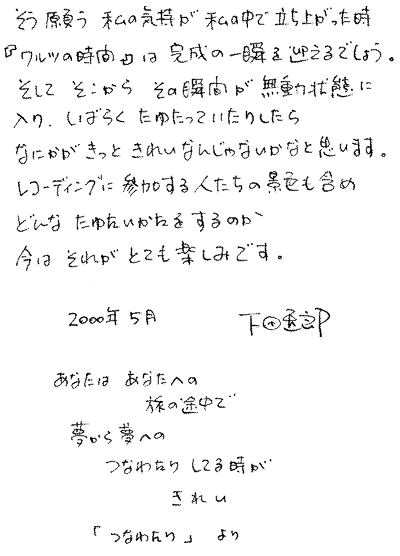 そう願う 私の気持が 私の中で立ち上がった時
『ワルツの時間』は 完成の一瞬を迎えるでしょう。
そして そこから その瞬間が 無動状態に
入り、しばらく たゆたっていたりしたら
なにかがきっと きれいなんじゃないかなと思います。
レコーディングに 参加する人たちの 景色も含め
どんな たゆたいかたをするのか
今は それが とても楽しみです。
2000年5月 下田逸郎
あなたは あなたへの
旅の途中で
夢から夢への
つなわたり してる時が
きれい
「つなわたり」 より